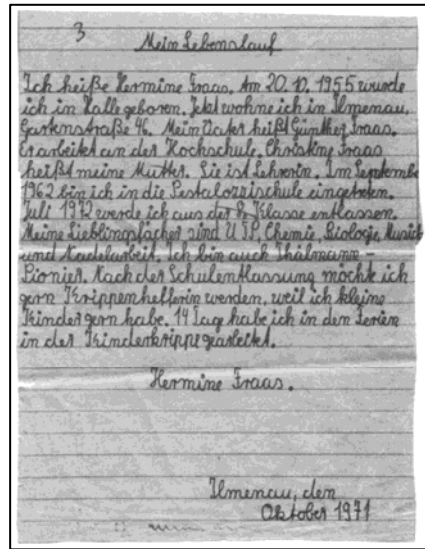 3
Mein Lebenslauf
Ich heiße Hermine Fraas. Am 20. 10. 1955 wurde
ich in Halle geboren. Jetzt wohne ich in Ilmenau,
Gartenstraße 46. Mein Vater heißt Günther Fraas.
Er arbeitet an der Hochschule. Christine Fraas
heißt meine Mutter. Sie ist Lehrerin. Im Septembe
1962 bin ich in die Pestalozzischule eingetreten.
Juli 1972 werde ich aus der 8. Klasse entlassen.
Meine Lieblingsfächer sind UTP, Chemie, Biologie, Musik
und Nadelarbeit. Ich bin auch Thälmann-
Pionier. Nach der Schulentlassung möchte ich
gern Krippenhelferin werden, weil ich kleine
Kinder gern habe. 14 Tage habe ich in den Ferien
in der Kinderkrippe gearbeitet.
Hermine Fraas.
Ilmenau, den
Oktober 1971